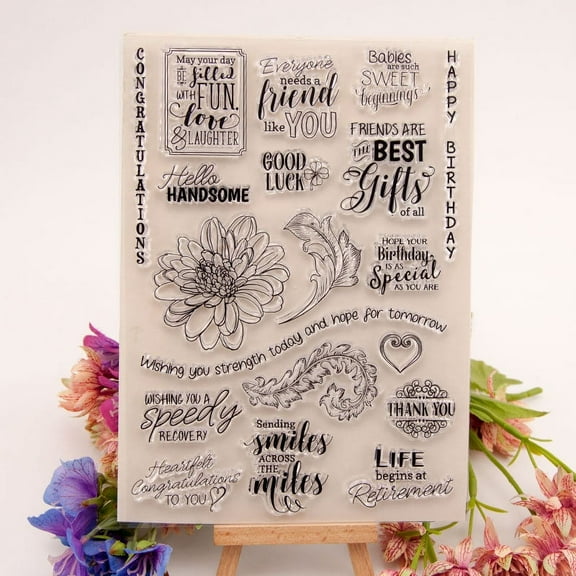 CONGRATULATIONS
May your day
BE filled
WITH FUN,
love
& LAUGHTER
Everyone
needs a
friend
like YOU
Babies
are such
SWEET
beginnings
HAPPY BIRTHDAY
Hello
HANDSOME
GOOD
LUCK
FRIENDS ARE
THE BEST
Gifts
of all
HOPE YOUR
Birthday
IS AS
Special
AS YOU ARE
Wishing you strength today and hope for tomorrow
WISHING YOU A
speedy
RECOVERY
THANK YOU
Sending
smiles
ACROSS
THE miles
Heartfelt
Congratulations
TO YOU
LIFE
begins at
Retirement